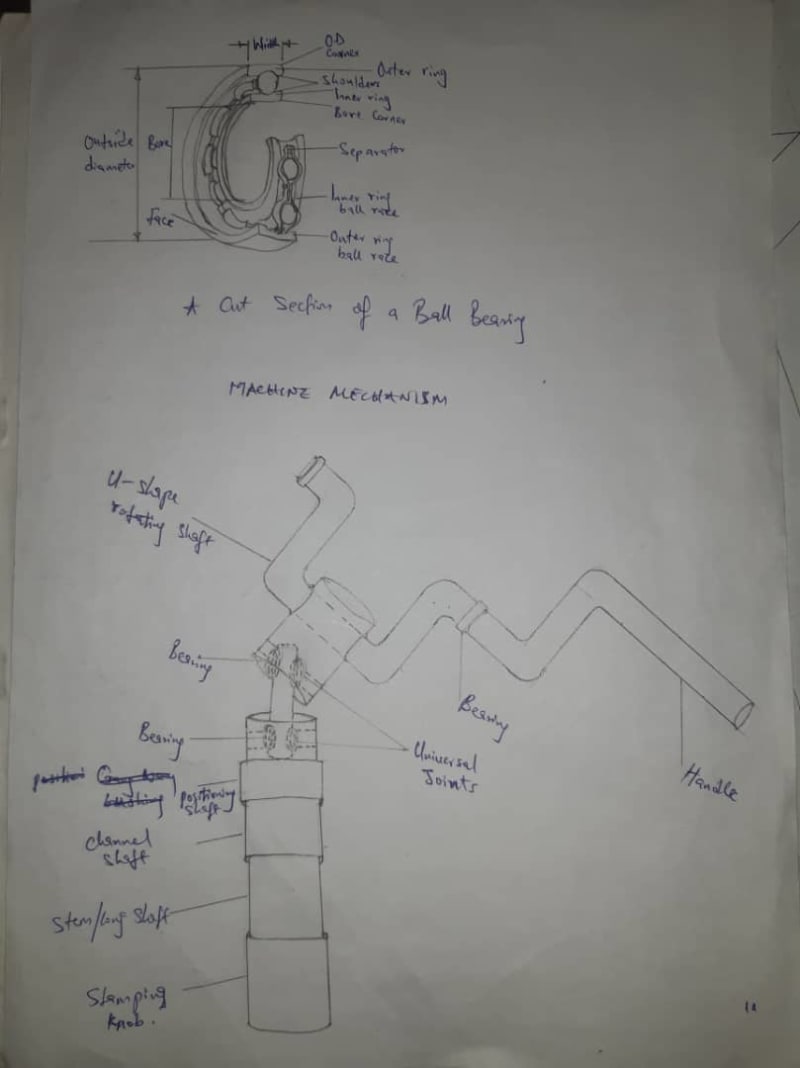 Width
OD
Corner
Outer ring
Shoulders
Inner ring
Bore Corner
Outside
diameter
Bore
Separator
Inner ring
ball race
Face
Outer ring
ball race
A Cut Section of a Ball Bearing
MACHINE MECHANISM
U-shape
rotating shaft
Bearing
Bearing
Bearing
Universal
Joints
Handle
positioning
shaft
Channel
shaft
Stem/long shaft
Stamping
Knob.